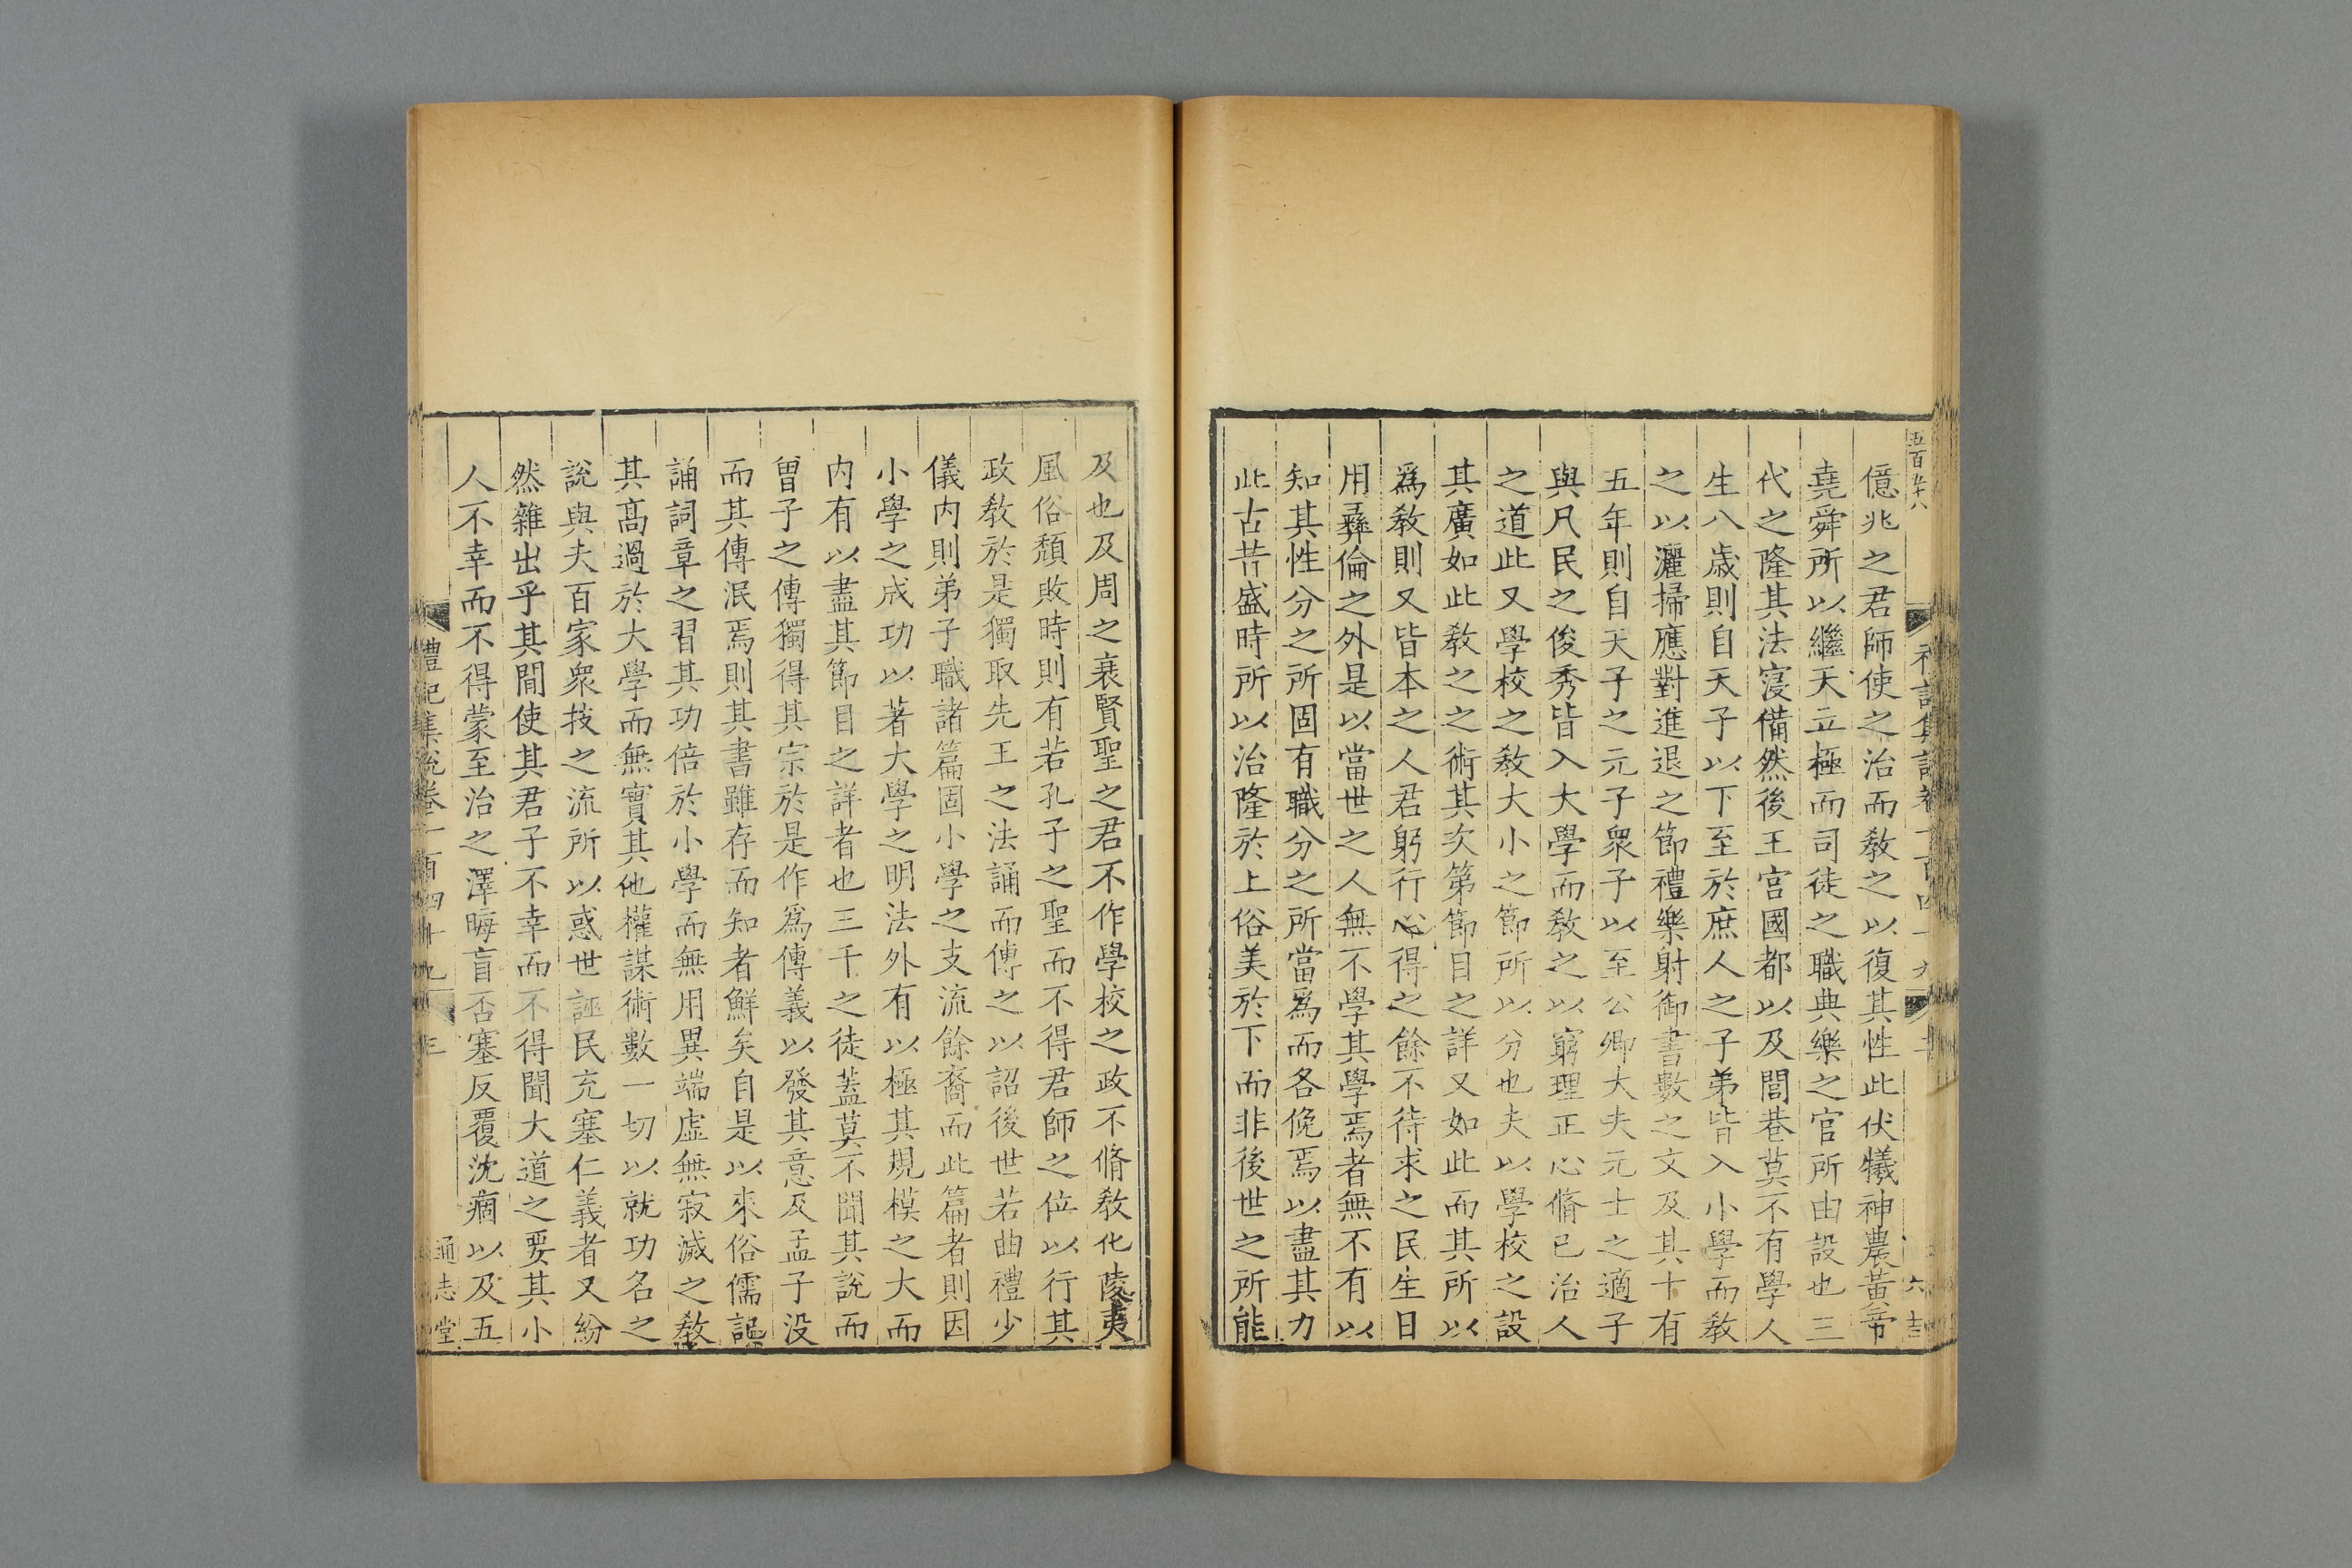 五百九十八
億兆之君師使之治而敎之以復其性此伏犧神農黃帝
堯舜所以繼天立極而司徒之職典樂之官所由設也三
代之隆其法寖備然後王宮國都以及閭巷莫不有學人
生八歲則自天子以下至於庶人之子弟皆入小學而敎
之以灑掃應對進退之節禮樂射御書數之文及其十有
五年則自天子之元子衆子以至公卿大夫元士之適子
與凡民之俊秀皆入大學而敎之以窮理正心脩己治人
之道此又學校之敎大小之節所以分也夫以學校之設
其廣如此敎之之術其次第節目之詳又如此而其所以
爲敎則又皆本之人君躬行心得之餘不待求之民生日
用彞倫之外是以當世之人無不學其學焉者無不有以
知其性分之所固有職分之所當爲而各俛焉以盡其力
此古昔盛時所以治隆於上俗美於下而非後世之所能
及也及周之衰賢聖之君不作學校之政不脩敎化陵夷
風俗頹敗時則有若孔子之聖而不得君師之位以行其
政敎於是獨取先王之法誦而傳之以詔後世若曲禮少
儀內則弟子職諸篇固小學之支流餘裔而此篇者則因
小學之成功以著大學之明法外有以極其規模之大而
內有以盡其節目之詳者也三千之徒蓋莫不聞其說而
曾子之傳獨得其宗於是作爲傳義以發其意及孟子没
而其傳泯焉則其書雖存而知者鮮矣自是以來俗儒記
誦詞章之習其功倍於小學而無用異端虛無寂滅之敎
其高過於大學而無實其他權謀術數一切以就功名之
說與夫百家衆技之流所以惑世誣民充塞仁義者又紛
然雜出乎其間使其君子不幸而不得聞大道之要其小
人不幸而不得蒙至治之澤晦盲否塞反覆沈痼以及五
禮記集說卷一百四十九 三 通志堂